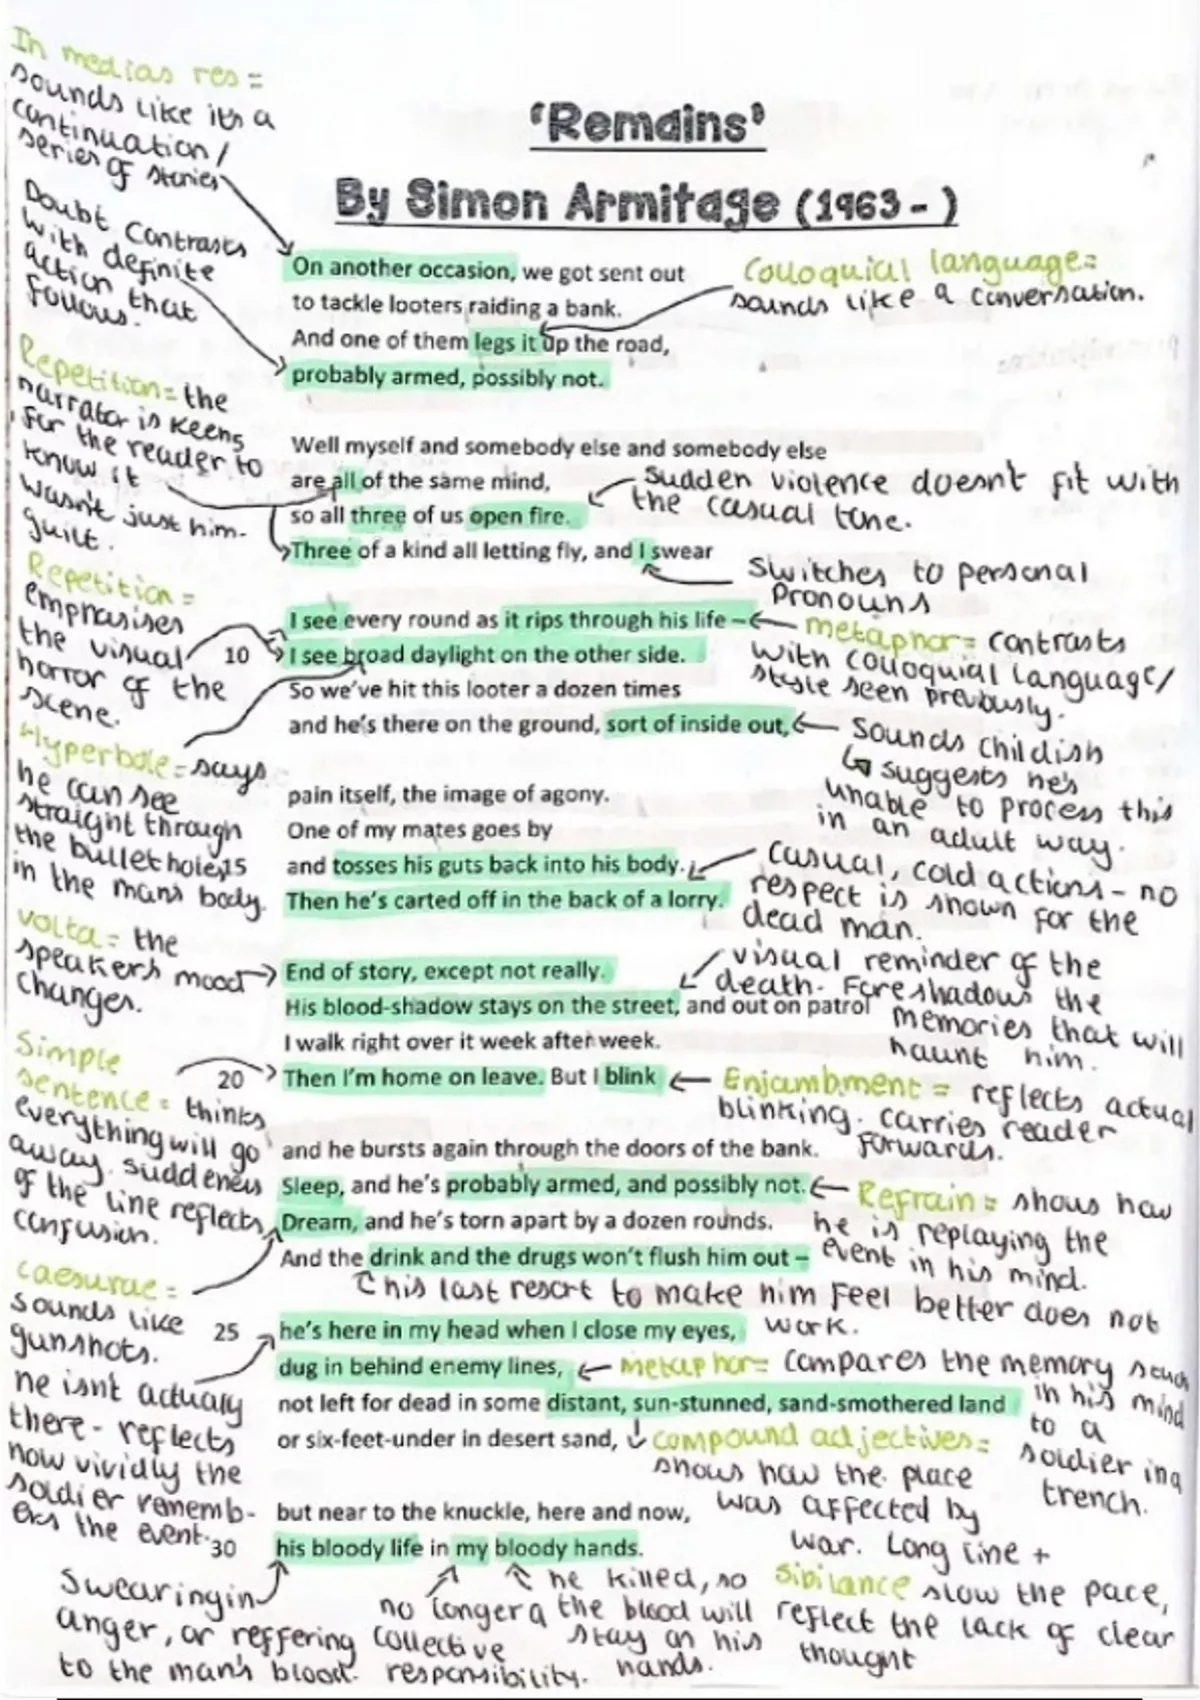 'Remains'
By Simon Armitage (1963 - )
In medias res =
sounds like it's a
continuation /
series of stories
Doubt contrasts
with definite
action that
follows.
Repetition = the
narrator is keens
for the reader to
know it
wasn't just him-
guilt.
Repetition =
emphasises
the visual
horror of the
scene.
Hyperbole = says
he can see
straight through
the bullet holes
in the mans body.
volta = the
speakers mood
changes.
Simple
sentence = thinks
everything will go
away. suddeness
of the line reflects
confusion.
caesurae =
sounds like
gunshots.
he isn't actually
there - reflects
how vividly the
soldier rememb-
ers the event.
On another occasion, we got sent out
to tackle looters raiding a bank.
And one of them legs it up the road,
probably armed, possibly not.
Well myself and somebody else and somebody else
are all of the same mind,
so all three of us open fire.
Three of a kind all letting fly, and I swear
I see every round as it rips through his life –
10 I see broad daylight on the other side.
So we've hit this looter a dozen times
and he's there on the ground, sort of inside out,
pain itself, the image of agony.
One of my mates goes by
15 and tosses his guts back into his body.
Then he's carted off in the back of a lorry.
End of story, except not really.
His blood-shadow stays on the street, and out on patrol
I walk right over it week after week.
20 Then I'm home on leave. But I blink
and he bursts again through the doors of the bank.
Sleep, and he's probably armed, and possibly not.
Dream, and he's torn apart by a dozen rounds.
And the drink and the drugs won't flush him out –
25 he's here in my head when I close my eyes,
dug in behind enemy lines,
not left for dead in some distant, sun-stunned, sand-smothered land
or six-feet-under in desert sand,
but near to the knuckle, here and now,
30 his bloody life in my bloody hands.
Colloquial language =
sounds like a conversation.
Sudden violence doesnt fit with
the casual tone.
Switches to personal
pronouns
metaphor = contrasts
with colloquial language/
style seen previously.
Sounds childish
↳ suggests he's
unable to process this
in an adult way.
Casual, cold actions - no
respect is shown for the
dead man.
visual reminder of the
death. Foreshadows the
memories that will
haunt him.
Enjambment = reflects actual
blinking. carries reader
forwards.
Refrain = shows how
he is replaying the
event in his mind.
his last resort to make him feel better does not
work.
metaphor = compares the memory
in his mind
to a
soldier in a
trench.
compound adjectives =
shows how the place
was affected by
war. Long line +
sibilance slow the pace,
reflect the lack of clear
thought
Swearing in
anger, or reffering
to the man's blood.
no longer a
collective
responsibility.
he killed, so
the blood will
stay on his
hands.